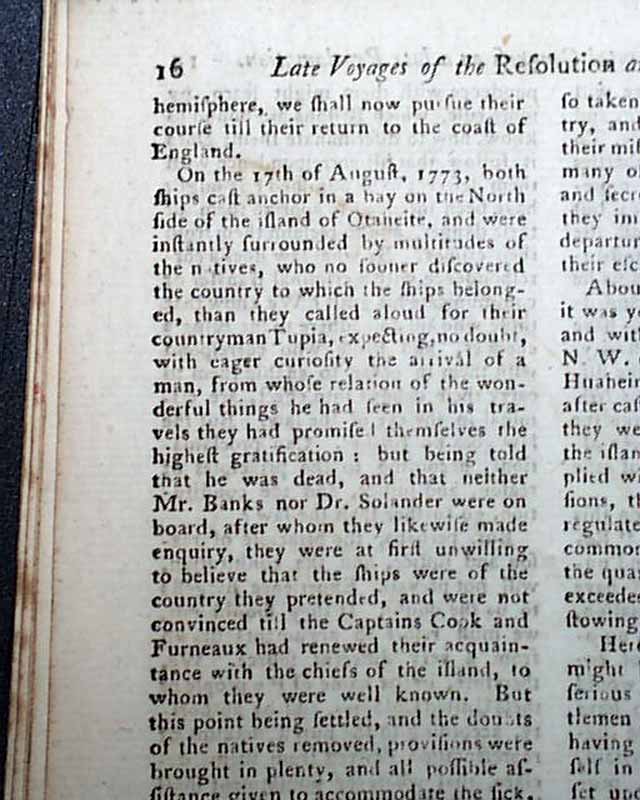 16 Late Voyages of the Reſolution a
hemiſphere, we ſhall now purſue their
courſe till their return to the coaſt of
England.
On the 17th of Auguſt, 1773, both
ſhips caſt anchor in a bay on the North
ſide of the iſland of Otaheite, and were
inſtantly ſurrounded by multitudes of
the natives, who no ſooner diſcovered
the country to which the ſhips belong-
ed, than they called aloud for their
countryman Tupia, expecting, no doubt,
with eager curioſity the arrival of a
man, from whoſe relation of the won-
derful things he had ſeen in his tra-
vels they had promiſed themſelves the
higheſt gratification : but being told
that he was dead, and that neither
Mr. Banks nor Dr. Solander were on
board, after whom they likewiſe made
enquiry, they were at firſt unwilling
to believe that the ſhips were of the
country they pretended, and were not
convinced till the Captains Cook and
Furneaux had renewed their acquain-
tance with the chiefs of the iſland, to
whom they were well known. But
this point being ſettled, and the doubts
of the natives removed, proviſions were
brought in plenty, and all poſſible aſ-
ſiſtance given to accommodate the ſick,
ſo taken
try, and
their miſ
many o
and ſecr
they im
departur
their eſc
Abou
it was y
and wit
N. W.
Huahein
after caſ
they we
the iſlan
plied wi
ſions, t
regulate
common
the qua
exceede
ſtowing
Here
might
ſerious
tlemen
having
ſelf in
ſet up